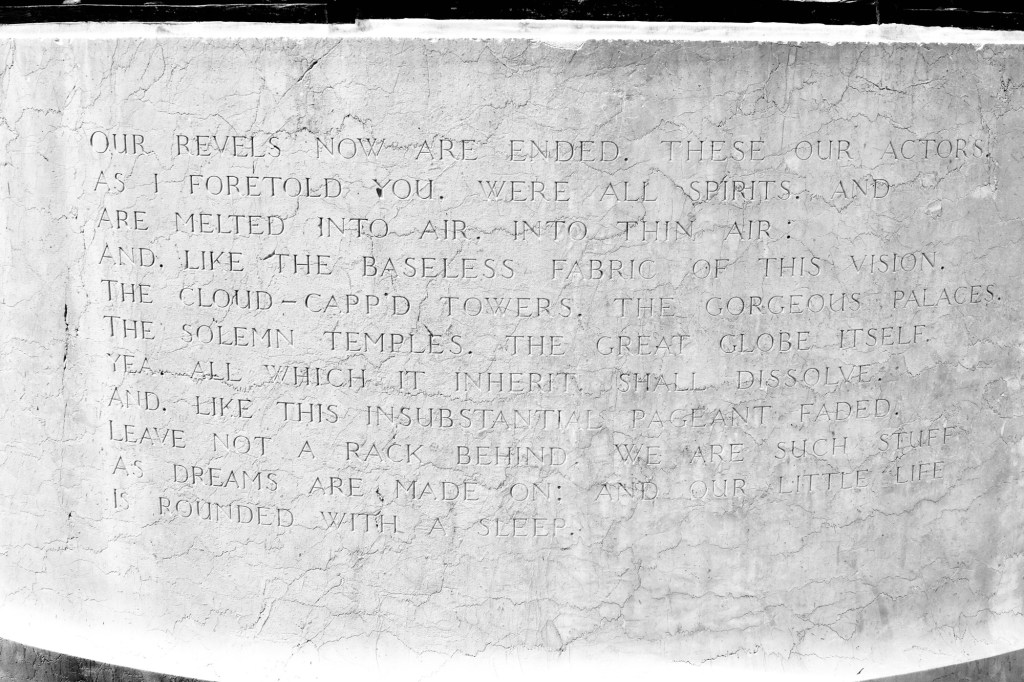 OUR REVELS NOW ARE ENDED. THESE OUR ACTORS.
AS I FORETOLD YOU. WERE ALL SPIRITS. AND
ARE MELTED INTO AIR. INTO THIN AIR:
AND. LIKE THE BASELESS FABRIC OF THIS VISION.
THE CLOUD-CAPP'D TOWERS. THE GORGEOUS PALACES.
THE SOLEMN TEMPLES. THE GREAT GLOBE ITSELF.
YEA. ALL WHICH IT INHERIT. SHALL DISSOLVE.
AND. LIKE THIS INSUBSTANTIAL PAGEANT FADED.
LEAVE NOT A RACK BEHIND. WE ARE SUCH STUFF
AS DREAMS ARE MADE ON: AND OUR LITTLE LIFE
IS ROUNDED WITH A SLEEP.